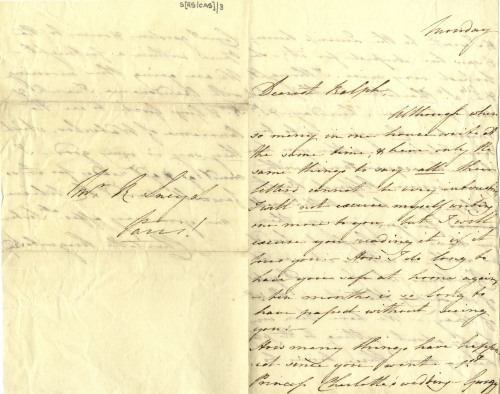 Monday
Dearest Ralph,
Although when
so many in one house write at
the same time, & have only the
same things to say all their
letters cannot be very interes
I will not excuse myself writing
me more to you, but I will
excuse you reading it, if it
tires you - How I do long to
have you safe at home again
six months is so long to
have passed without seeing
you -
How many things have happe
since you went - 1st
Princess Charlotte's wedding
Mr R Sneyd
Paris!